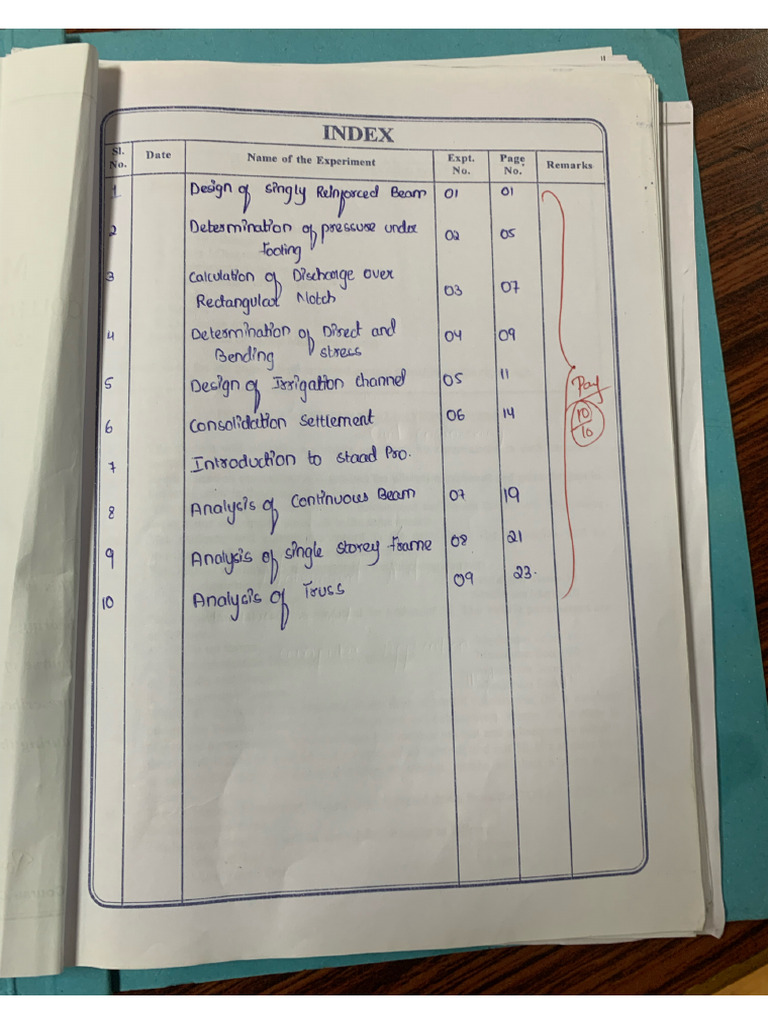 INDEX
Sl. No. Date Name of the Experiment Expt. No. Page No. Remarks
1 Design of Singly Reinforced Beam 01 01
2 Determination of pressure under
footing 02 05
3 Calculation of Discharge over
Rectangular Notch 03 07
4 Determination of Direct and
Bending stress 04 09
5 Design of Irrigation channel 05 11
6 Consolidation Settlement 06 14
7 Introduction to Staad Pro.
8 Analysis of Continuous Beam 07 19
9 Analysis of Single Storey frame 08 21
10 Analysis of Truss 09 23.
10
10